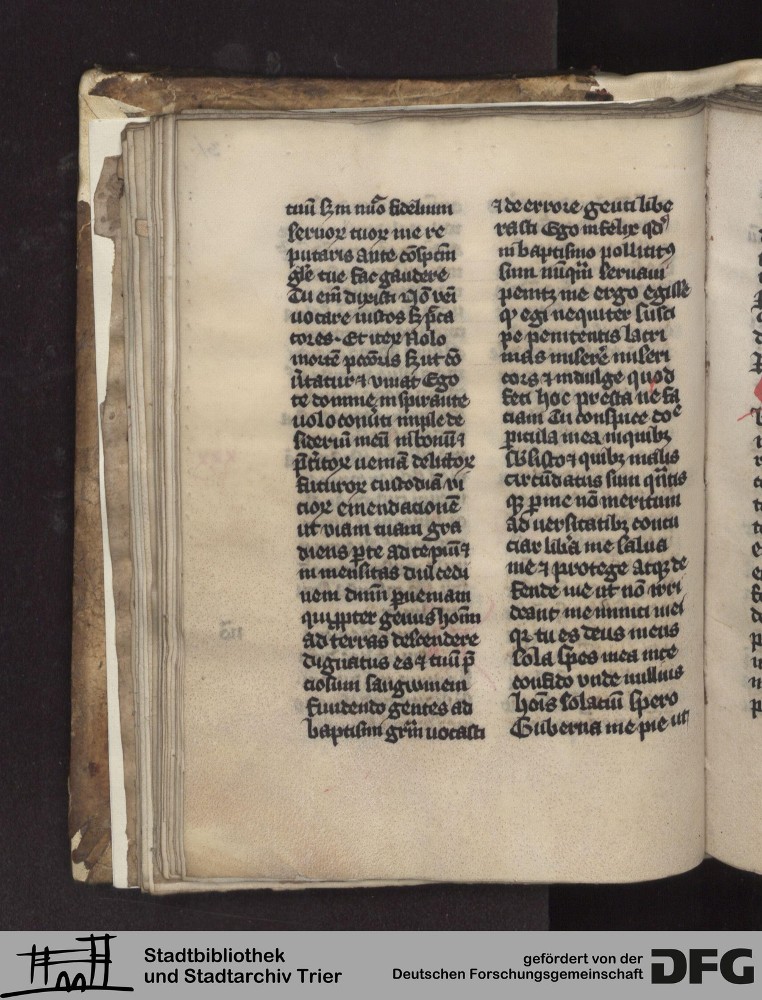 tuū sʒ in nūo fidelium
seruoꝝ tuoꝝ me re
putaris ante cōspctū
glē tue fac gaudere
Tu em̄ dixisti Nō veī
uocare iustos sʒ pcca
tores · Et iteꝝ Nolo
mortē pccōris sʒ ut cō
ūtatur ⁊ viuat Ego
te domine inspirante
uolo conūti imple de
sideriū meū in bonū ⁊
p̄titoꝝ ueniā delictoꝝ
futuroꝝ custodiā vi
cioꝝ emendacionē
ut viam tuam gra
diens ꝑte ad te piū ⁊
in mensitas dulcedi
nem diuīn ꝑueniam
qui ꝓpter genus hoīm
ad terras descendere
dignatus es ⁊ tuū p̄
ciosum sangwinem
fundendo gentes ad
baptismi grām uocasti
⁊ de errore genti libe
rasti Ego infelix qd
in baptismo pollicitꝰ
sum nūqm̄ seruaui
penitʒ me ergo egisse
qꝫ egi nequiter susci
pe penitentis lacri
mas miserē miseri
cors ⁊ indulge quod
feci hoc presta ne fa
ciam Tu conspice doe
picula mea in quibʒ
subsisto ⁊ quibʒ malis
circūdatus sum qn̄tis
qʒ ꝑ me nō meritum
ad uersitatibʒ concu
ciar libā me salua
me ⁊ protege atqʒ de
fende me ut nō irri
deant me inimici mei
qꝛ tu es deus meus
sola spes mea in te
confido vnde nullius
hoīs solaciū spero
Guberna me pie ut
Stadtbibliothek
und Stadtarchiv Trier
gefördert von der
Deutschen Forschungsgemeinschaft
DFG